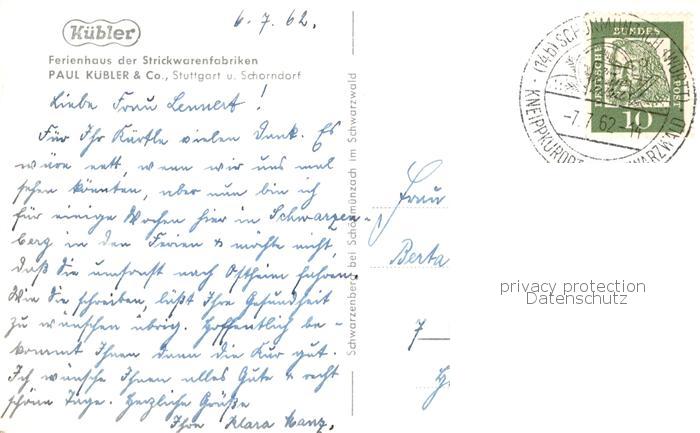 6.7.62.
Kübler
Ferienhaus der Strickwarenfabriken
PAUL KÜBLER & Co., Stuttgart u. Schorndorf
Liebe Frau Lennert!
Für Ihr Kärtle vielen Dank. Es
wäre nett, wenn wir uns mal
sehen könnten, aber nun bin ich
für einige Wochen hier in Schwarzen-
berg in den Ferien & möchte nicht,
daß Sie umsonst nach Ostheim fahren.
Wie Sie schreiben, läßt Ihre Gesundheit
zu wünschen übrig. Hoffentlich be-
kommt Ihnen dann die Kur gut.
Ich wünsche Ihnen alles Gute & recht
schöne Tage. Herzliche Grüße
Ihre Klara Manz.
Schwarzenberg bei Schönmünzach im Schwarzwald
Frau
Berta
7
(14b) SCHÖNMÜNZACH (WÜRTT)
-7.7.62-14
KNEIPPKURORT SCHWARZWALD
DEUTSCHE BUNDESPOST
10
privacy protection
Datenschutz